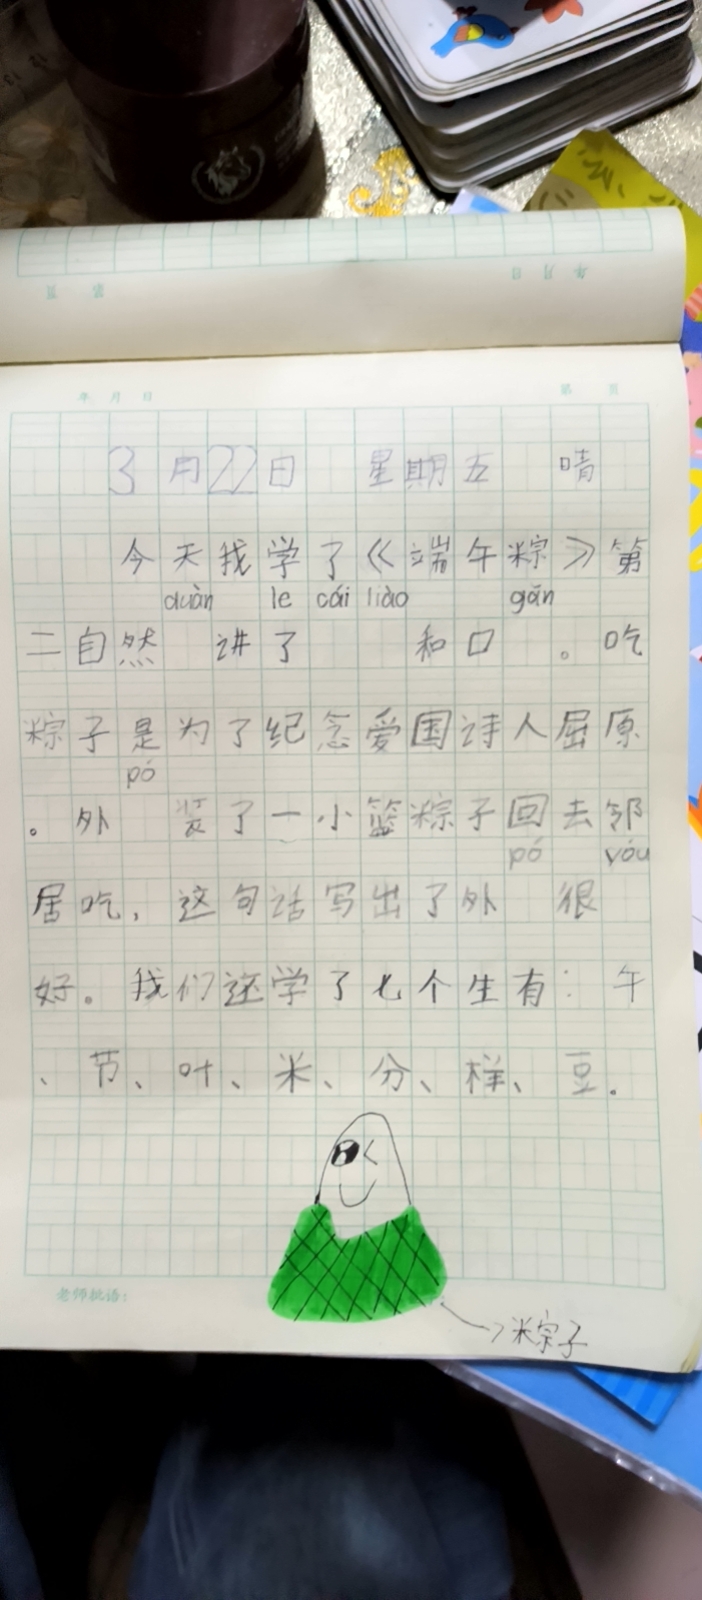 年 月 日
第 页
年 月 日 第 页
3月22日 星期五 晴
今天我学了《端午粽》第
duàn le cái liào gǎn
二自然 讲了 和口 。吃
粽子是为了纪念爱国诗人屈原
pó
。外 装了一小篮粽子回去邻
pó yóu
居吃，这句话写出了外 很
好。我们还学了七个生有：午
、节、叶、米、分、样、豆.
老师批语：
粽子